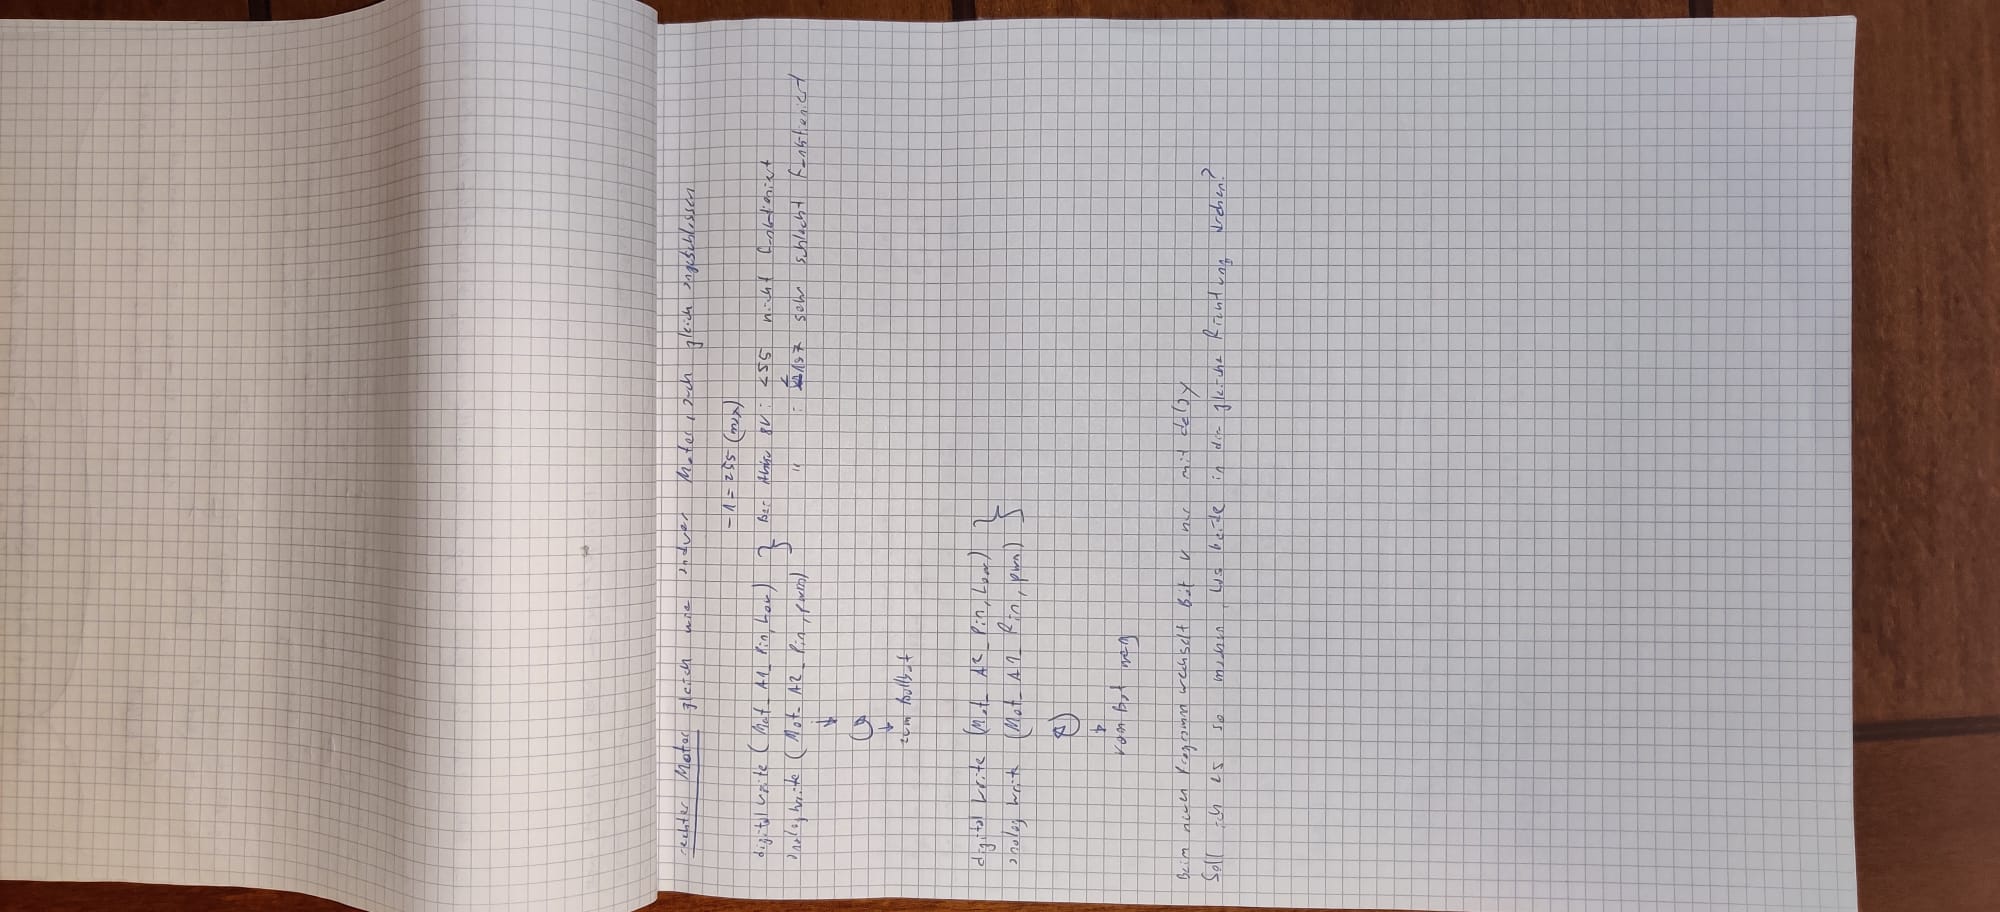 rechter Motor gleich wie andver Motor, auch gleich angeschlossen
- 1 = 255 (max)
digitalWrite ( Mot_A1_Pin, Low) } bei 8V : <55 nicht funktioniert
analogWrite ( Mot_A2_Pin, pwm) " : <157 sehr schlecht funktioniert
↓
↓
zum Ballbot
digitalWrite (Mot_A2_Pin, Low) }
analogWrite (Mot_A1_Pin, pwm)
↓
vom Bot weg
Beim neuen Programm wechselt Bot v nur mit delay
Soll ich es so machen, das beide in die gleiche Richtung drehen?